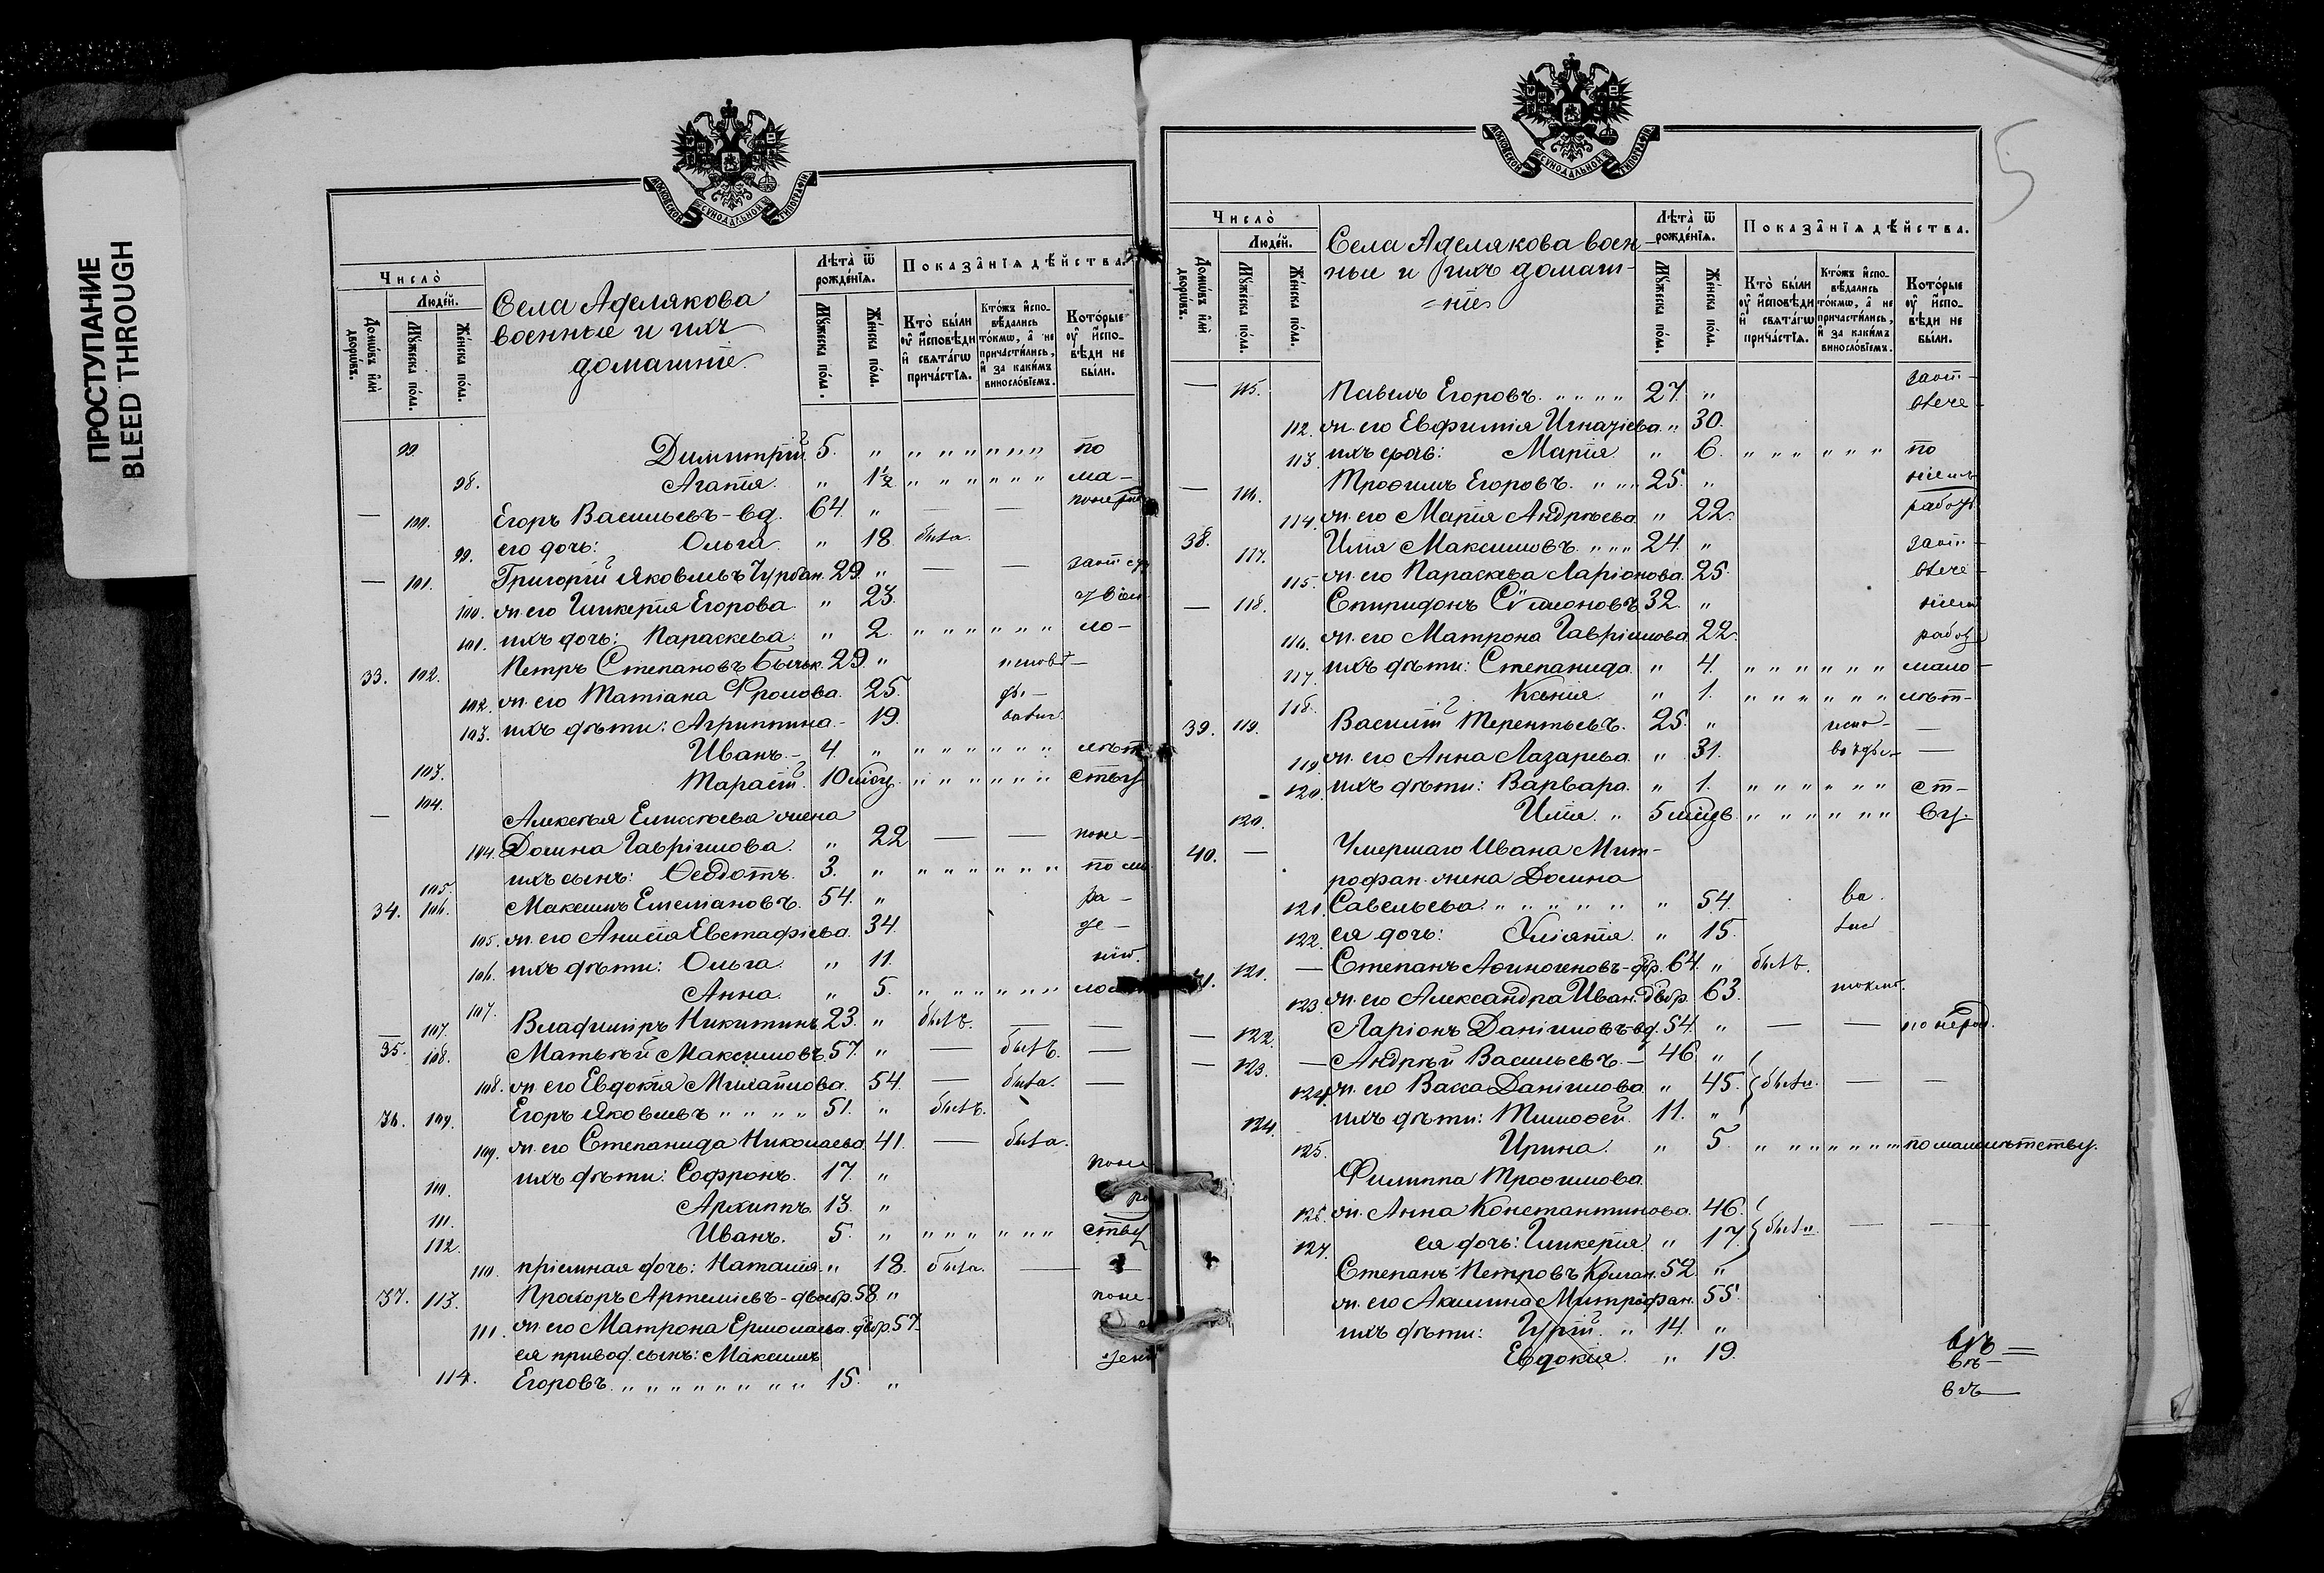 ПРОСТУПАНИЕ
BLEED THROUGH
МОСКОВСКОЙ СѴНОДАЛЬНОЙ ТИПОГРАФІИ
Число̀
Людей.
Домѡвъ и҆лѝ дворѡвъ.
Мꙋжеска пола.
Женска пола.
Села Аделякова
военные и ихъ
домашніе.
Лѣта̀ ѿ рожденїѧ.
Мꙋжеска пола.
Женска пола.
Показанїѧ дѣйства.
Кто̀ были ᲂу҆ и҆сповѣди и҆ свѧтагѡ причастїѧ.
Ктожъ и҆сповѣдались токмѡ, а҆ не причастились, и҆ за какимъ винословїемъ.
Которые ᲂу҆ и҆сповѣди не были.
99. Димитрій. 5. " " " " " " " по
98. Агапія. " 1½ " " " " " " ма-
— 100. Егоръ Васильевъ - вд. 64. " — —
99. его дочь: Ольга. " 18. была.
— 101. Григорій Яковлевъ Чурбан. 29. " — —
100. ж. его Гликерія Егорова. " 23.
101. ихъ дочь: Параскева. " 2. " " " " " " ло-
33. 102. Петръ Степановъ 29. "
102. ж. его Татіана Фролова. 25.
103. ихъ дѣти: Агриппина. - 19.
103. Иванъ. - 4. " " " " " " " лѣт
104. Тарасій. 10 мѣс. " " " " " " ству
— Алексѣя Елисѣева жена
104. Домна Гавріилова. " 22 — — поне-
105. ихъ сынъ: Ѳеодотъ. 3. " " " " " " " по ма
34. 106. Максимъ Емеліановъ. 54. " ра-
105. ж. его Анисія Евстафіева. 34.
106. ихъ дѣти: Ольга. " 11.
107. Анна. " 5. " " " " " "
107. Владиміръ Никитинъ. 23. " былъ. — —
35. 108. Матвѣй Максимовъ. 57. " — былъ. —
108. ж. его Евдокія Михайлова. 54. — была. —
36. 109. Егоръ Яковлевъ " " " " 51. " былъ.
109. ж. его Степанида Николаева. 41. — была.
110. ихъ дѣти: Софронъ. 17. " поне
111. Архиппъ. 13. "
112. Иванъ. 5. " " " " " " " ству
110. пріемная дочь: Наталія. " 18. была. — —
37. 113. Прохоръ Артеміевъ - двоебр. 58. " поне-
111. ж. его Матрона Ермолаева. двбр. 57.
ея привод. сынъ: Максимъ
114. Егоровъ. " " " " " " " " " 15. "
5
МОСКОВСКОЙ СѴНОДАЛЬНОЙ ТИПОГРАФІИ
Число̀
Людей.
Домѡвъ и҆лѝ дворѡвъ.
Мꙋжеска пола.
Женска пола.
Села Аделякова воен-
ные и ихъ домаш-
=ніе
Лѣта̀ ѿ рожденїѧ.
Мꙋжеска пола.
Женска пола.
Показанїѧ дѣйства.
Кто̀ были ᲂу҆ и҆сповѣди и҆ свѧтагѡ причастїѧ.
Ктожъ и҆сповѣдались токмѡ, а҆ не причастились, и҆ за какимъ винословїемъ.
Которые ᲂу҆ и҆сповѣди не были.
— 115. Павелъ Егоровъ. " " " " 27. "
112. ж. его Евфимія Игнатіева. " 30.
113. ихъ дочь: Марія. " 6. " " " " " " по
— 116. Трофимъ Егоровъ. " " " 25. "
114. ж. его Марія Андрѣева. " 22.
38. 117. Илія Максимовъ. " " " 24. "
115. ж. его Параскева Ларіонова. 25.
— 118. Спиридонъ Сѵмеоновъ. 32. "
116. ж. его Матрона Гавріилова. 22.
117. ихъ дѣти: Степанида. " 4. " " " " " " мало-
118. Ксенія. " 1. " " " " " " лѣт-
39. 119. Василій Терентьевъ. 25. " —
119. ж. его Анна Лазарева. " 31. —
120. ихъ дѣти: Варвара. " 1. " " " " " " ст-
120. Илія. " 5 мѣс. " " " " " " ву.
40. — Умершаго Ивана Мит-
рофан. жена Домна
121. Савельева. " " " " " " " 54.
122. ея дочь: Іуліанія. " 15.
41. 121. — Степанъ Аѳиногеновъ - двбр. 64. " былъ.
123. ж. его Александра Иван. двбр. 63. токмо.
— 122. Ларіонъ Даніиловъ - вд. 54. " — — по нерад.
— 123. — Андрѣй Васильевъ. — 46. "
124. ж. его Васса Даніилова. " 45. были. — —
124. ихъ дѣти: Тимоѳей. 11. "
125. Ирина. " 5. " " " " " " по малолѣтству.
Филиппа Трофимова.
126. ж. Анна Константинова. 46.
127. ея дочь: Гликерія. " 17. были. — —
Степанъ Петровъ 52. "
ж. его Акилина Митрофан. 55.
ихъ дѣти: Гурій. " 14. "
Евдокія. " 19.